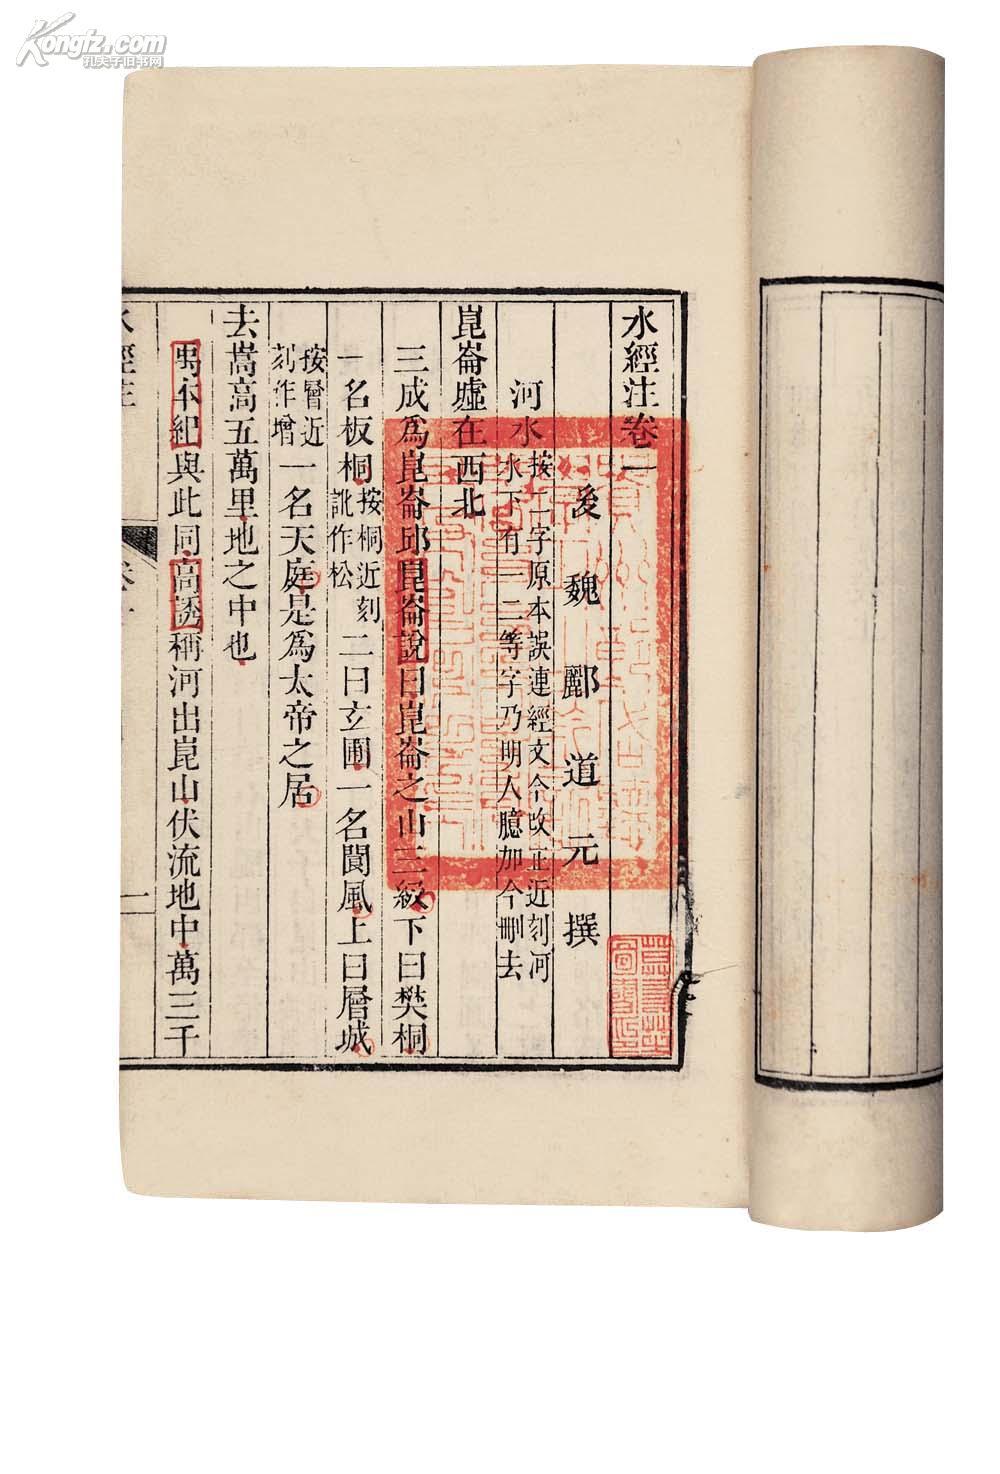 Kongfz.com
孔夫子旧书网
水經注卷一
後魏酈道元撰
河水按一字原本誤連經文今改正近刻河
水下有一二等字乃明人臆加今刪去
崑崙墟在西北
三成爲崑崙邱崑崙說曰崑崙之山三級下曰樊桐
一名板桐按桐近刻訛作松二曰玄圃一名閬風上曰層城
按層近刻作增一名天庭是爲太帝之居
去嵩高五萬里地之中也
禹本紀與此同高誘稱河出崑山伏流地中萬三千
水經注
卷一
一